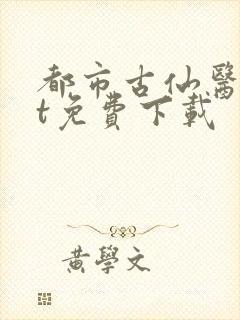 都市古仙醫
t免費下載
黃學文